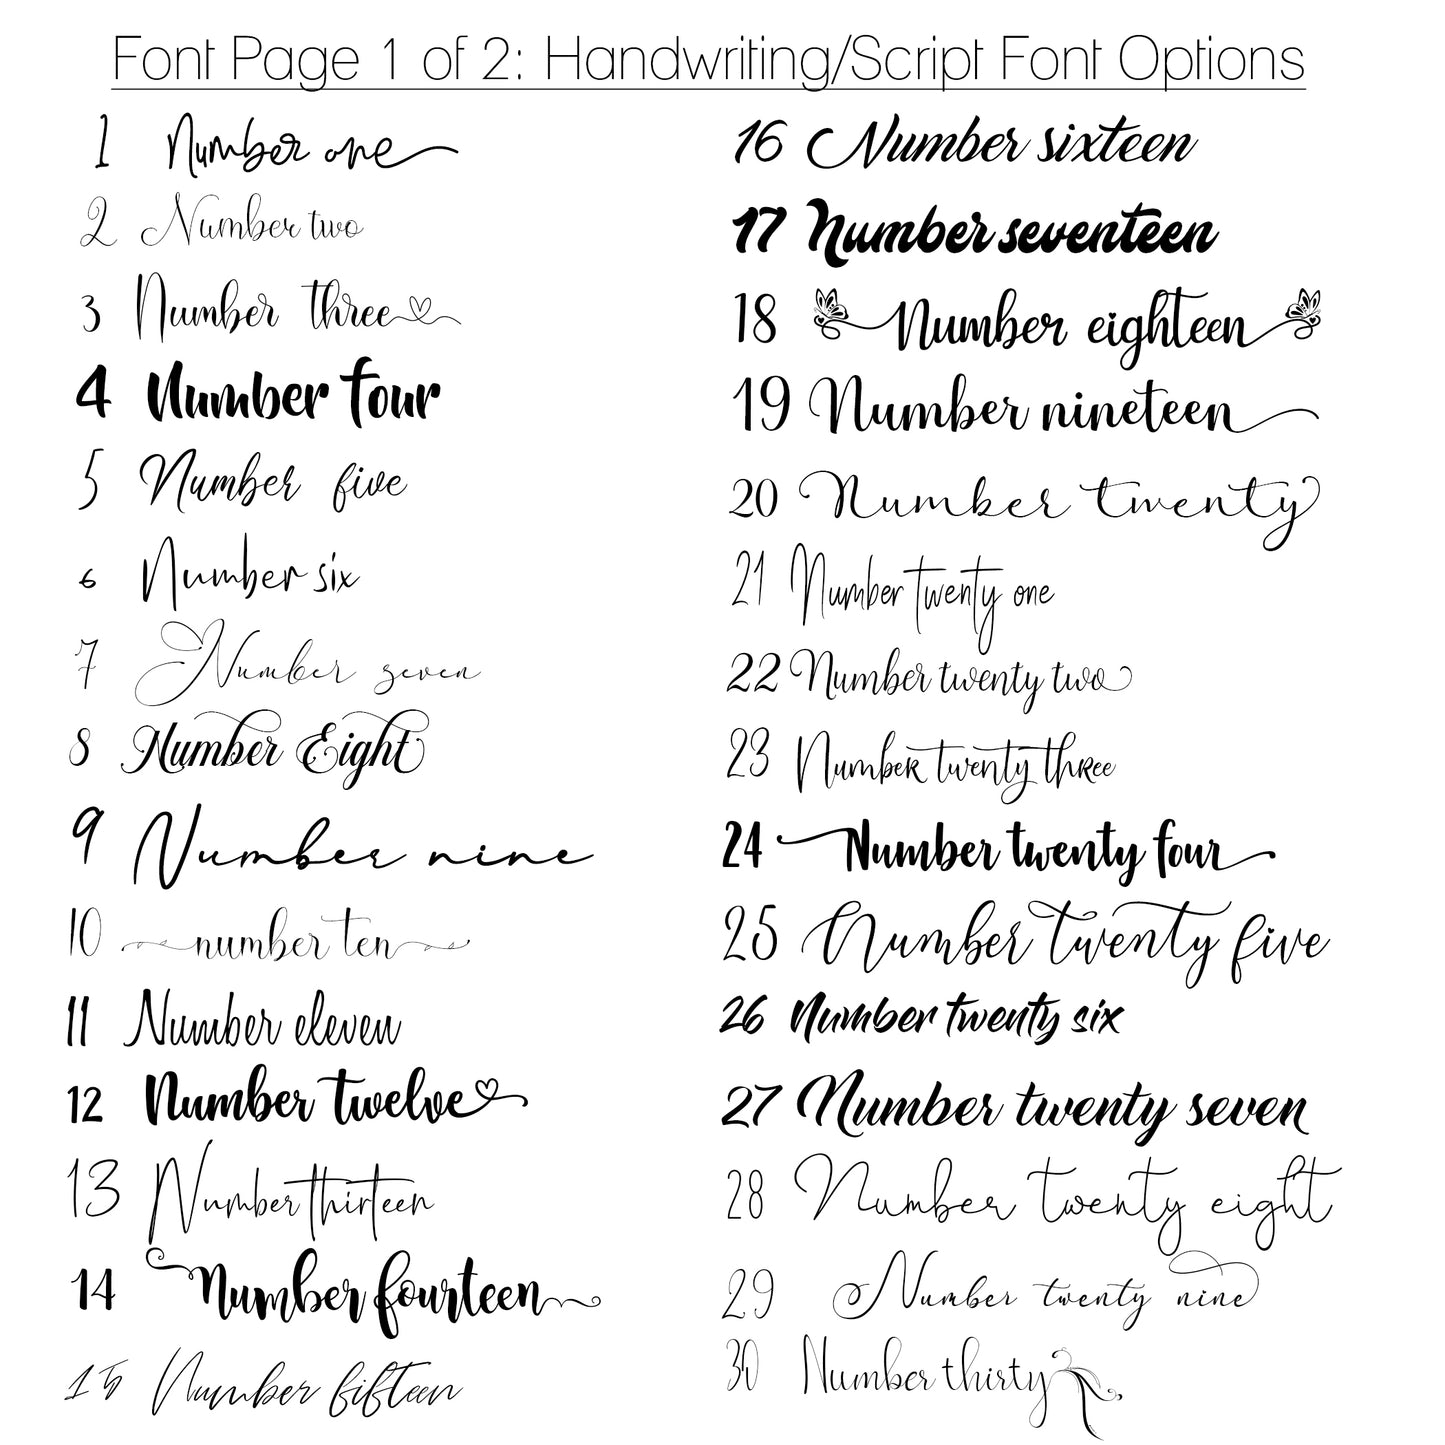 Font Page 1 of 2: Handwriting/Script Font Options
1 Number one
2 Number two
3 Number three
4 Number four
5 Number five
6 Number six
7 Number seven
8 Number Eight
9 Number nine
10 number ten
11 Number eleven
12 Number twelve
13 Number thirteen
14 Number fourteen
15 Number fifteen
16 Number sixteen
17 Number seventeen
18 Number eighteen
19 Number nineteen
20 Number twenty
21 Number twenty one
22 Number twenty two
23 Number twenty three
24 Number twenty four
25 Number twenty five
26 Number twenty six
27 Number twenty seven
28 Number twenty eight
29 Number twenty nine
30 Number thirty